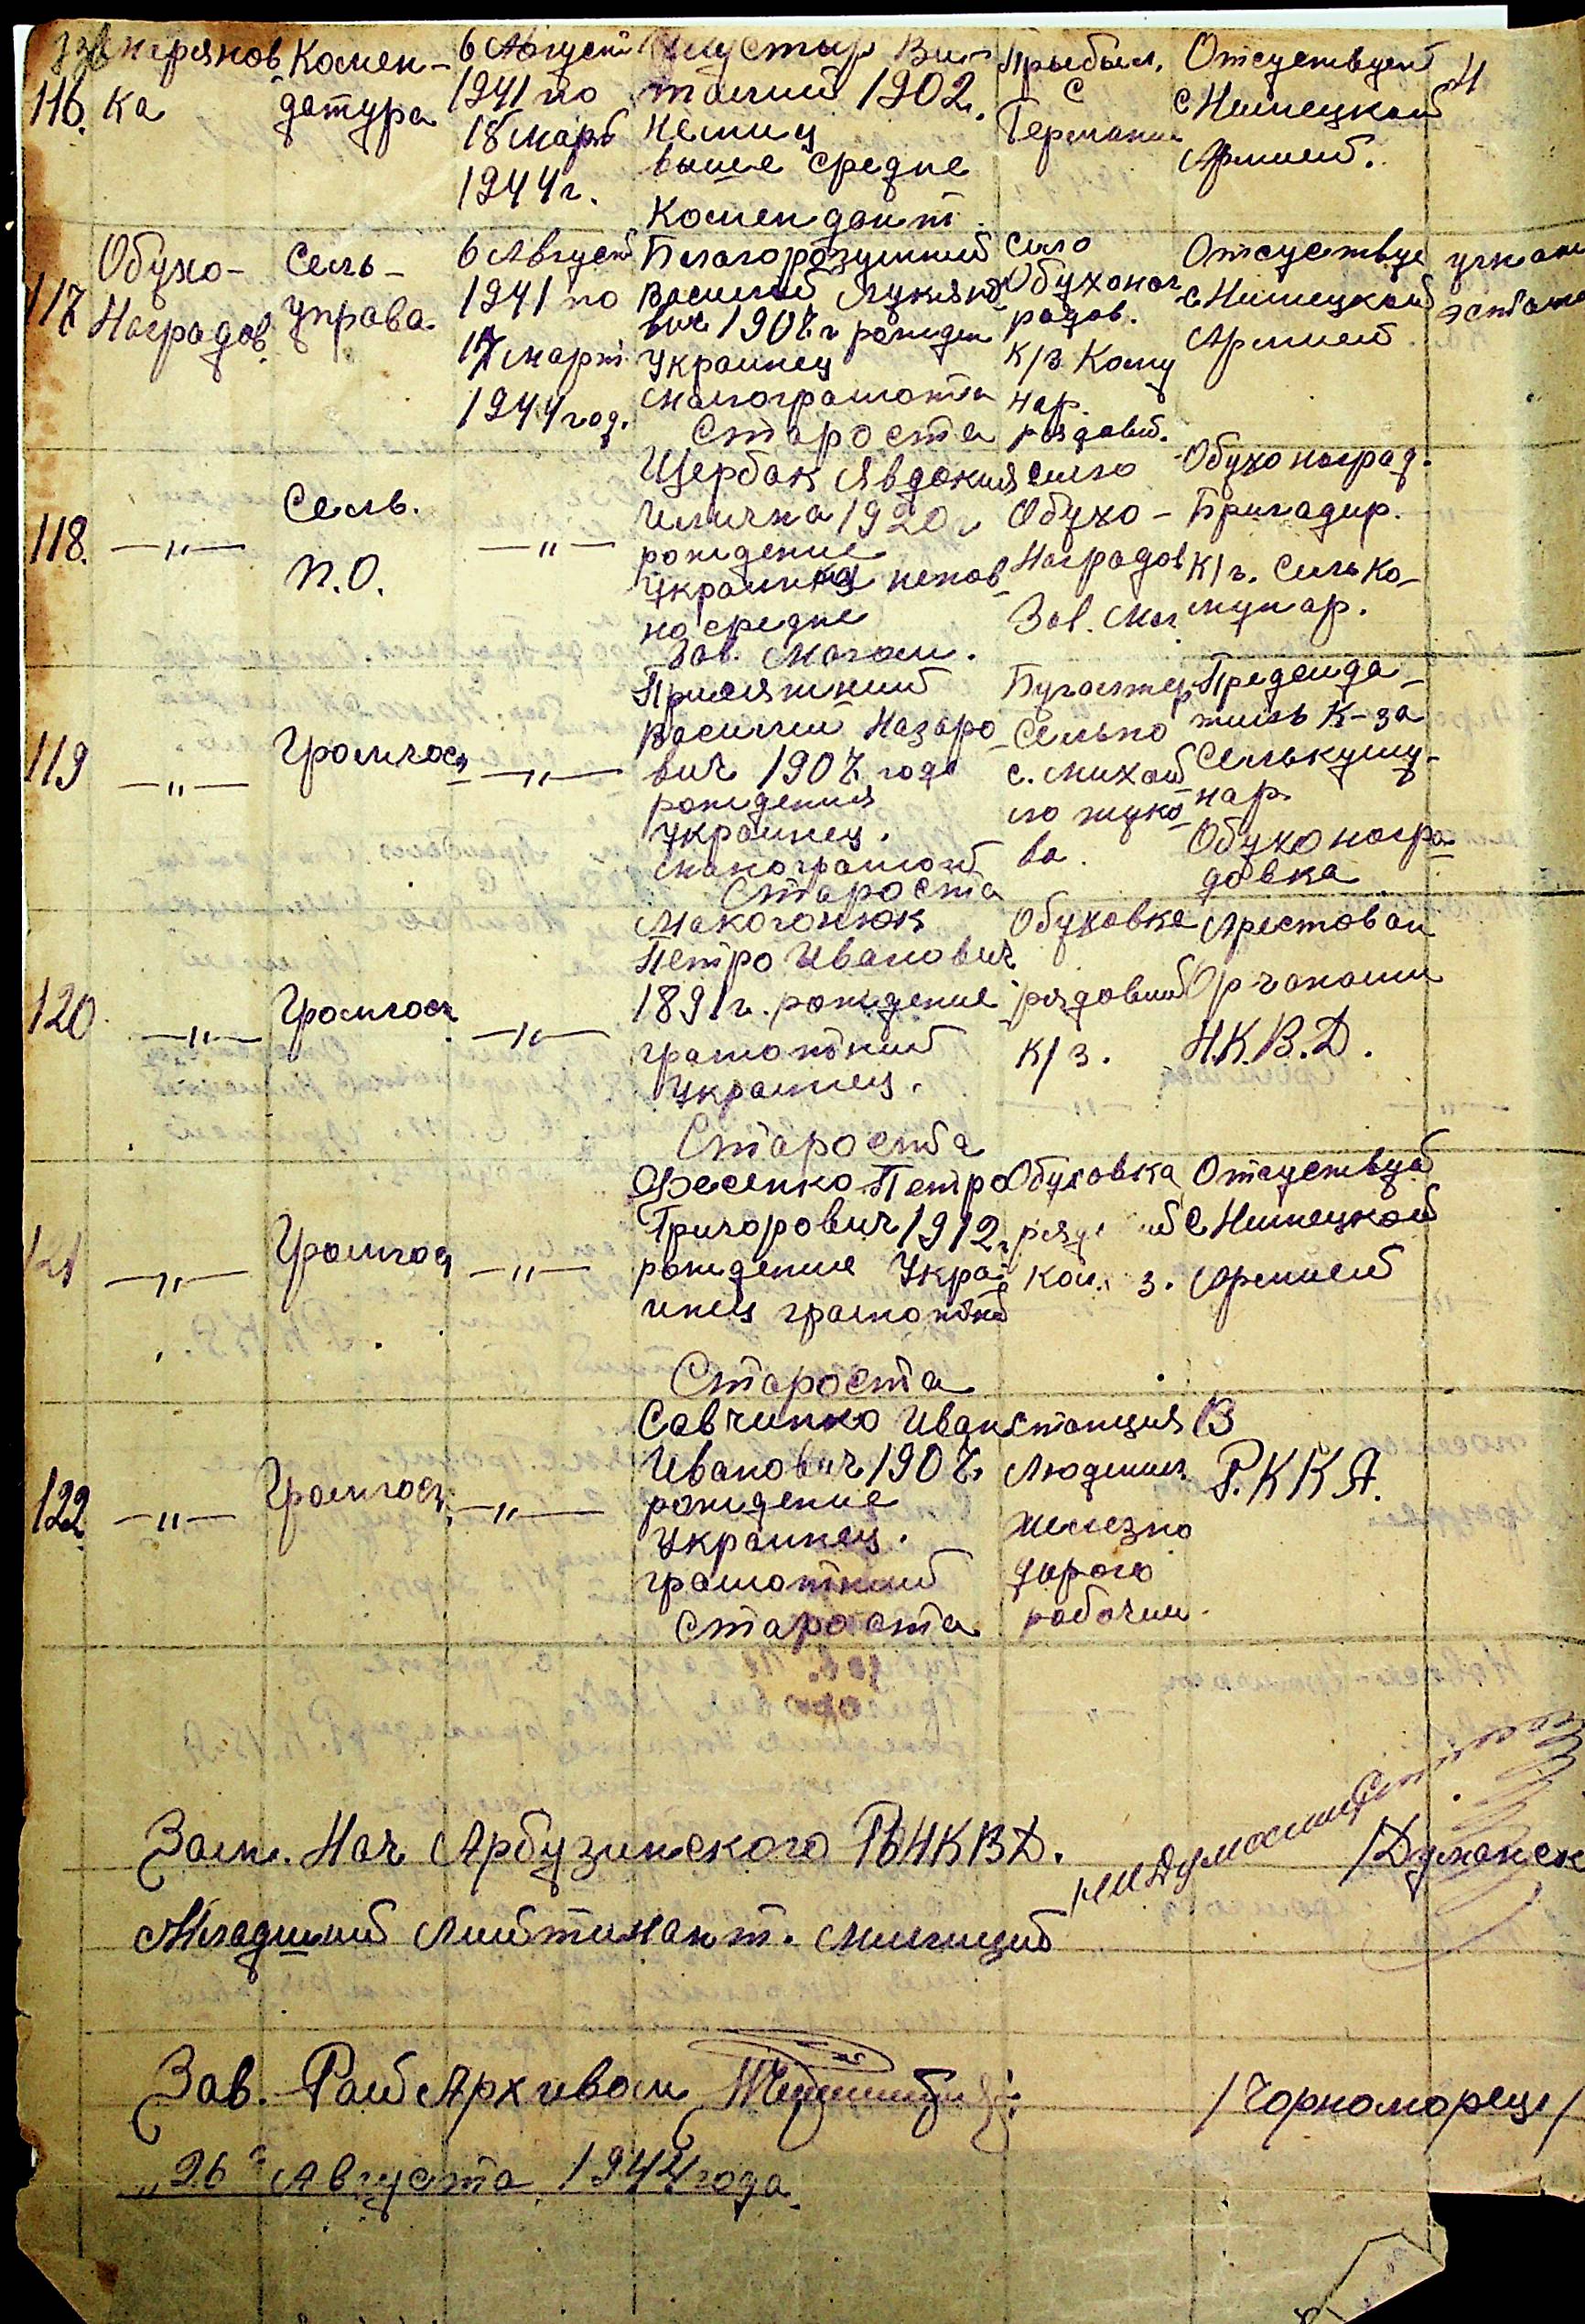 116. ка
Комен-
датура
6 Август
1941 по
18 март
1944 г.
1902.
немец
выше средне
Комендант
Прибыл
с
Германии
Отсуствует
с Нимецкой
Армией.
117
Обухо-
Наградов.
Сель-
управа.
6 Август
1941 по
17 март
1944 год.
Благоразумний
Василий Лукяно
вич 1907 г рожден
Украинец
малограмотн
Староста
село
Обухонаг
радов.
к/з Кому
нар.
рядовий.
Отсуствуе
с Нимецкой
Армией
118.
—„—
Сель.
П.О.
—„—
Щербак Явдокия
Илична 1920 г
рождение
Украинка непов
на средне
Зав. Магаз.
село
Обухо-
Наградов
Зав. Маг
Обухонаград.
Бригадир.
к/г. Селько-
мунар.
119
—„—
Громгосп
—„—
Присяжний
Василий Назаро
вич 1907 года
рождения
Украинец.
малограмотн
Староста
Бугалтер
Сельпо
с. Михай
ло жуко
ва.
Предсида-
тиль К-за
Селькуму-
нар.
Обухонагра-
довка
120
—„—
Громгосп
—„—
Макогонюк
Петро Иванович
1891 г. рождение
грамотний
Украинец.
Староста
Обуховка
рядовий
к/з.
Арестован
Органами
Н.К.В.Д.
121
—„—
Громгосп
—„—
Фесенко Петро
Григорович 1912 г
рождение Укра
инец грамотний
Староста
Обуховка
кол. з.
Отсуствует
с Нимецкой
Армией
122.
—„—
Громгосп
—„—
Савчинко Иван
Иванович 1907 г
рождение
Украинец.
грамотний
Староста
станция
Людмил
железно
дорого
рабочим.
В
Р.К.К.А.
Зам. Нач Арбузинского РОНКВД.
/Думанск
Младший Лийтинант. Милиций
Зав. РайАрхивом
/Чорноморец/
„26" Августа 1944 года.